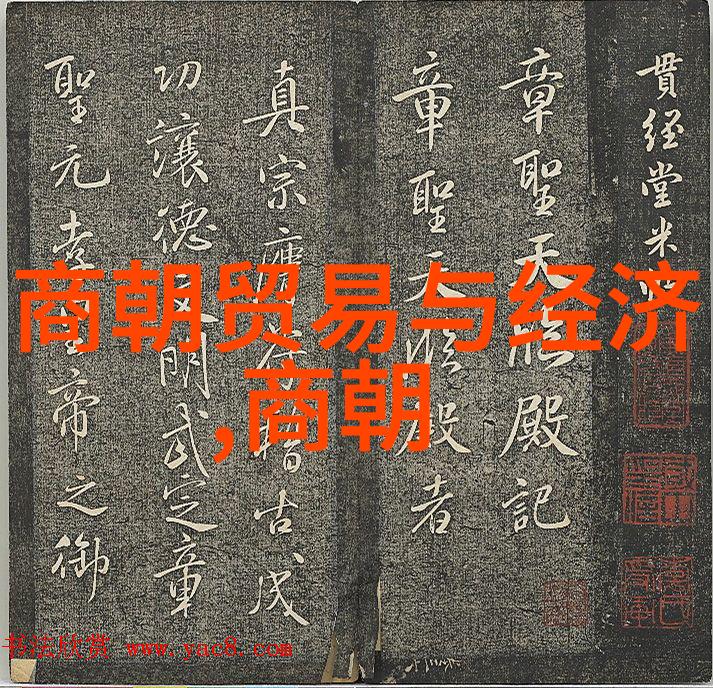 貫經堂米
章聖天臨殿記
章聖天臨殿者
真宗膺符稽古成
功讓德文明武定章
聖元孝皇帝之御
商朝贸易与经济
,商朝
书法欣赏 www.yac8.com